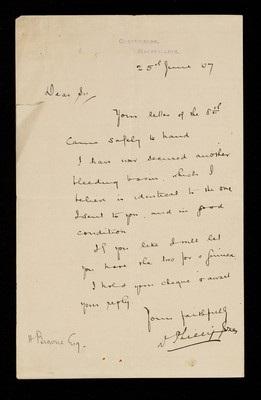 25th June 07
Dear Sir,
Your letter of the 5th
came safely to hand
I have now secured another
bleeding bowl, which I
believe is identical to the one
I sent to you, and in good
condition
If you like I will let
you have the two for a guinea
I hold your cheque & await
your reply
Yours faithfully
H Browne Esq.